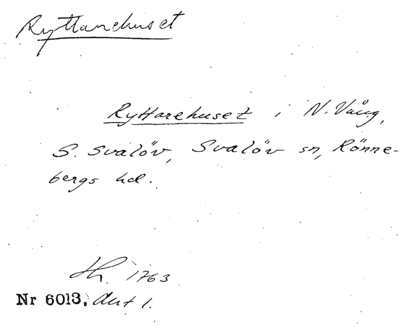 Ryttarehuset
Ryttarehuset i N. Vång,
S. Svalöv, Svalöv sn, Rönne-
bergs hd.
1763
Nr 6013, Akt 1.